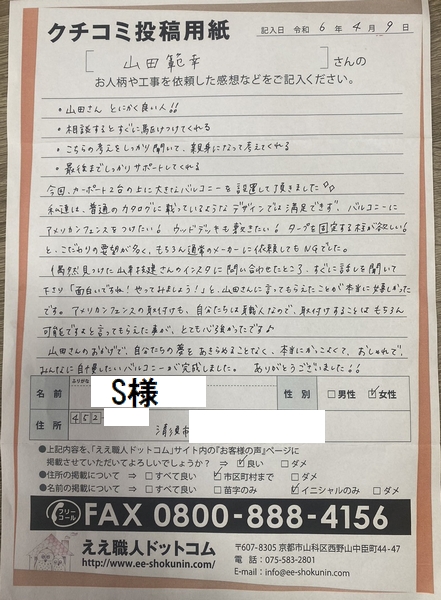 クチコミ投稿用紙
記入日 令和 6年 4月 9日
[山田 範幸]さんの
お人柄や工事を依頼した感想などをご記入ください。
・山田さん とにかく良い人!!
・相談するとすぐに駆けつけてくれる
・こちらの考えをしっかり聞いて、親身になって考えてくれる
・最後までしっかりサポートしてくれる
今回、カーポート2台の上に大きなバルコニーを設置して頂きました
私達は、普通のカタログに載っているようなデザインでは満足できず、バルコニーに
アメリカンフェンスをつけたい!! ウッドデッキも敷きたい!! タープを固定する柱が欲しい!!
と、こだわりの要望が多く、もちろん通常のメーカーに依頼してもNGでした。
偶然見つけた山幸 さんのインスタに問い合わせたところ、すぐに話しを聞いて
下さり「面白いですね!やってみましょう!」と、山田さんに言ってもらえたことが本当に嬉しかった
です。アメリカンフェンスの取付けも、自分たちは 職人なので、取付けすることはもちろん
可能ですよと言ってもらえた事が、とても心強かったです♪
山田さんのおかげで、自分たちの夢をあきらめることなく、本当にかっこよくて、おしゃれで、
みんなに自慢したいバルコニーが完成しました。 ありがとうございました!!
ふりがな
名前 S様 性別 □男性 ☑女性
住所 452- 清須市
●上記内容を、「ええ職人ドットコム」サイト内の『お客様の声』ページに
掲載させていただいてよろしいでしょうか? ⇒ ☑良い □ダメ
●住所の掲載について ⇒ □すべて良い ☑市区町村まで □ダメ
●名前の掲載について ⇒ □すべて良い □苗字のみ ☑イニシャルのみ □ダメ
フリーコール FAX 0800-888-4156
ええ職人ドットコム
http://www.ee-shokunin.com/
〒607-8305 京都市山科区西野山中臣町44-47
電話:075-583-2801
E-mail:info@ee-shokunin.com